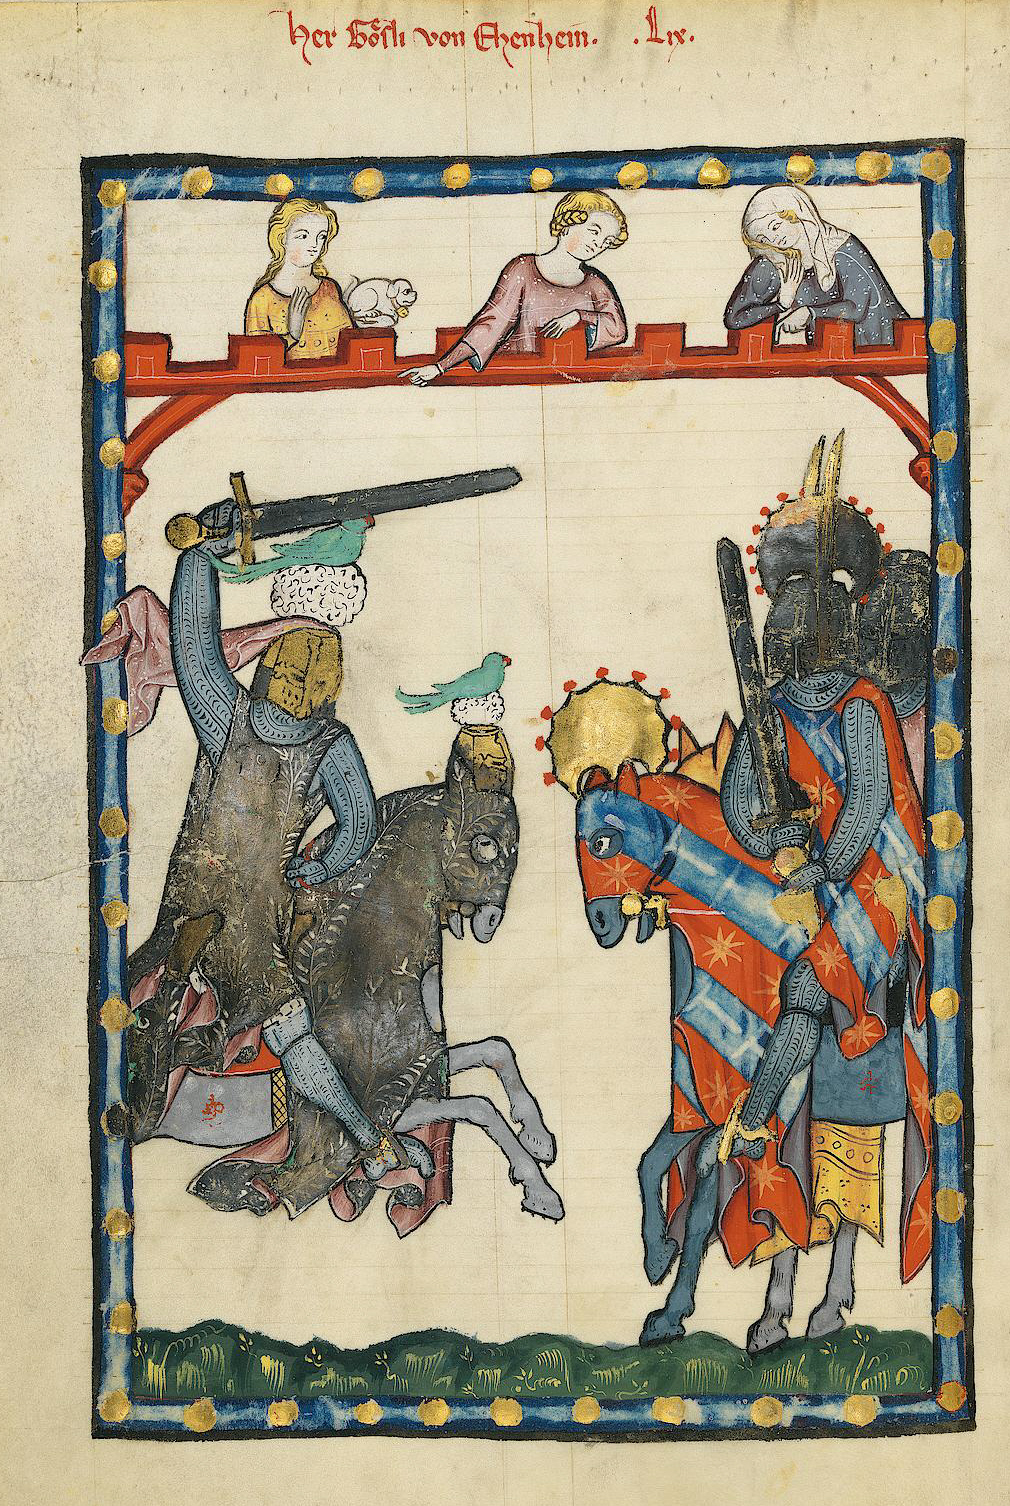 Her Gӧsli von Ehenhein. .Lix.